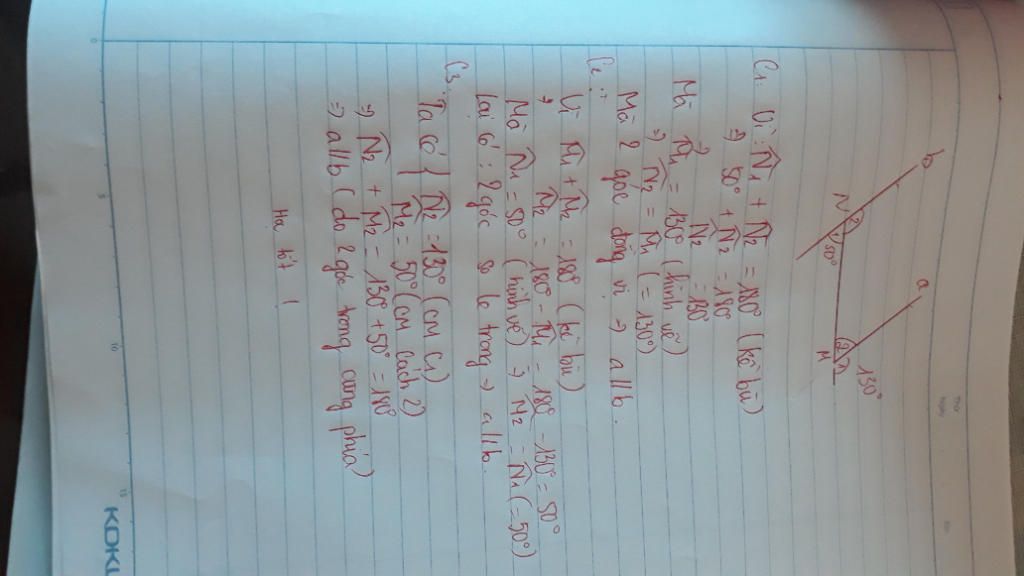 b
a
N 2
1 50°
130°
2 1
M
C1: Vì: N̂1 + N̂2 = 180° (kề bù)
=> 50° + N̂2 = 180°
N̂2 = 130°
Mà M̂1 = 130° (hình vẽ)
=> N̂2 = M̂1 (= 130°)
Mà 2 góc đồng vị → a//b.
C2:
Vì M̂1 + M̂2 = 180° (kề bù)
=> M̂2 = 180° - M̂1 = 180° - 130° = 50°
Mà N̂1 = 50° (hình vẽ) → M̂2 = N̂1 (= 50°)
Lại có: 2 góc so le trong → a//b.
C3:
Ta có { N̂2 = 130° (cm C1)
M̂2 = 50° (cm cách 2)
=> N̂2 + M̂2 = 130° + 50° = 180°
=> a//b (do 2 góc trong cùng phía)
!
0
5
10
15